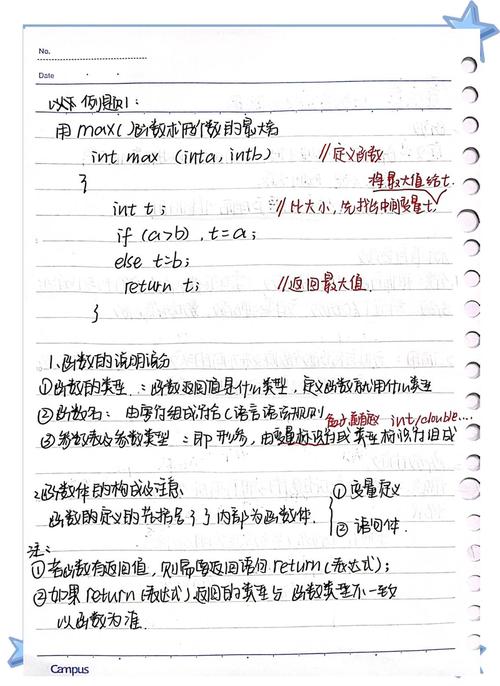 No.
Date
以下例题1:
用max()函数求两个数的最大值
int max (inta, intb) //定义函数
} 将最大值给t.
int t; //比大小,先找出中间变量t,
if (a>b), t=a;
else t=b;
return t; //返回最大值.
}
1.函数的说明部分
①函数的类型:函数返回值是什么类型,定义函数就用什么类型
②函数名: 由字符组成符合C语言语法规则
int/double....
③参数表及参数类型:即形参,由变量标识符或类型标识符组成
2.函数体的构成及注意、 ①变量定义
函数的定义的花括号{ }内部为函数体. ②语句体.
注:
①若函数有返回值,则需要返回语句return(表达式);
②如果return(表达式)返回的类型与函数类型不一致
以函数为准.
Campus